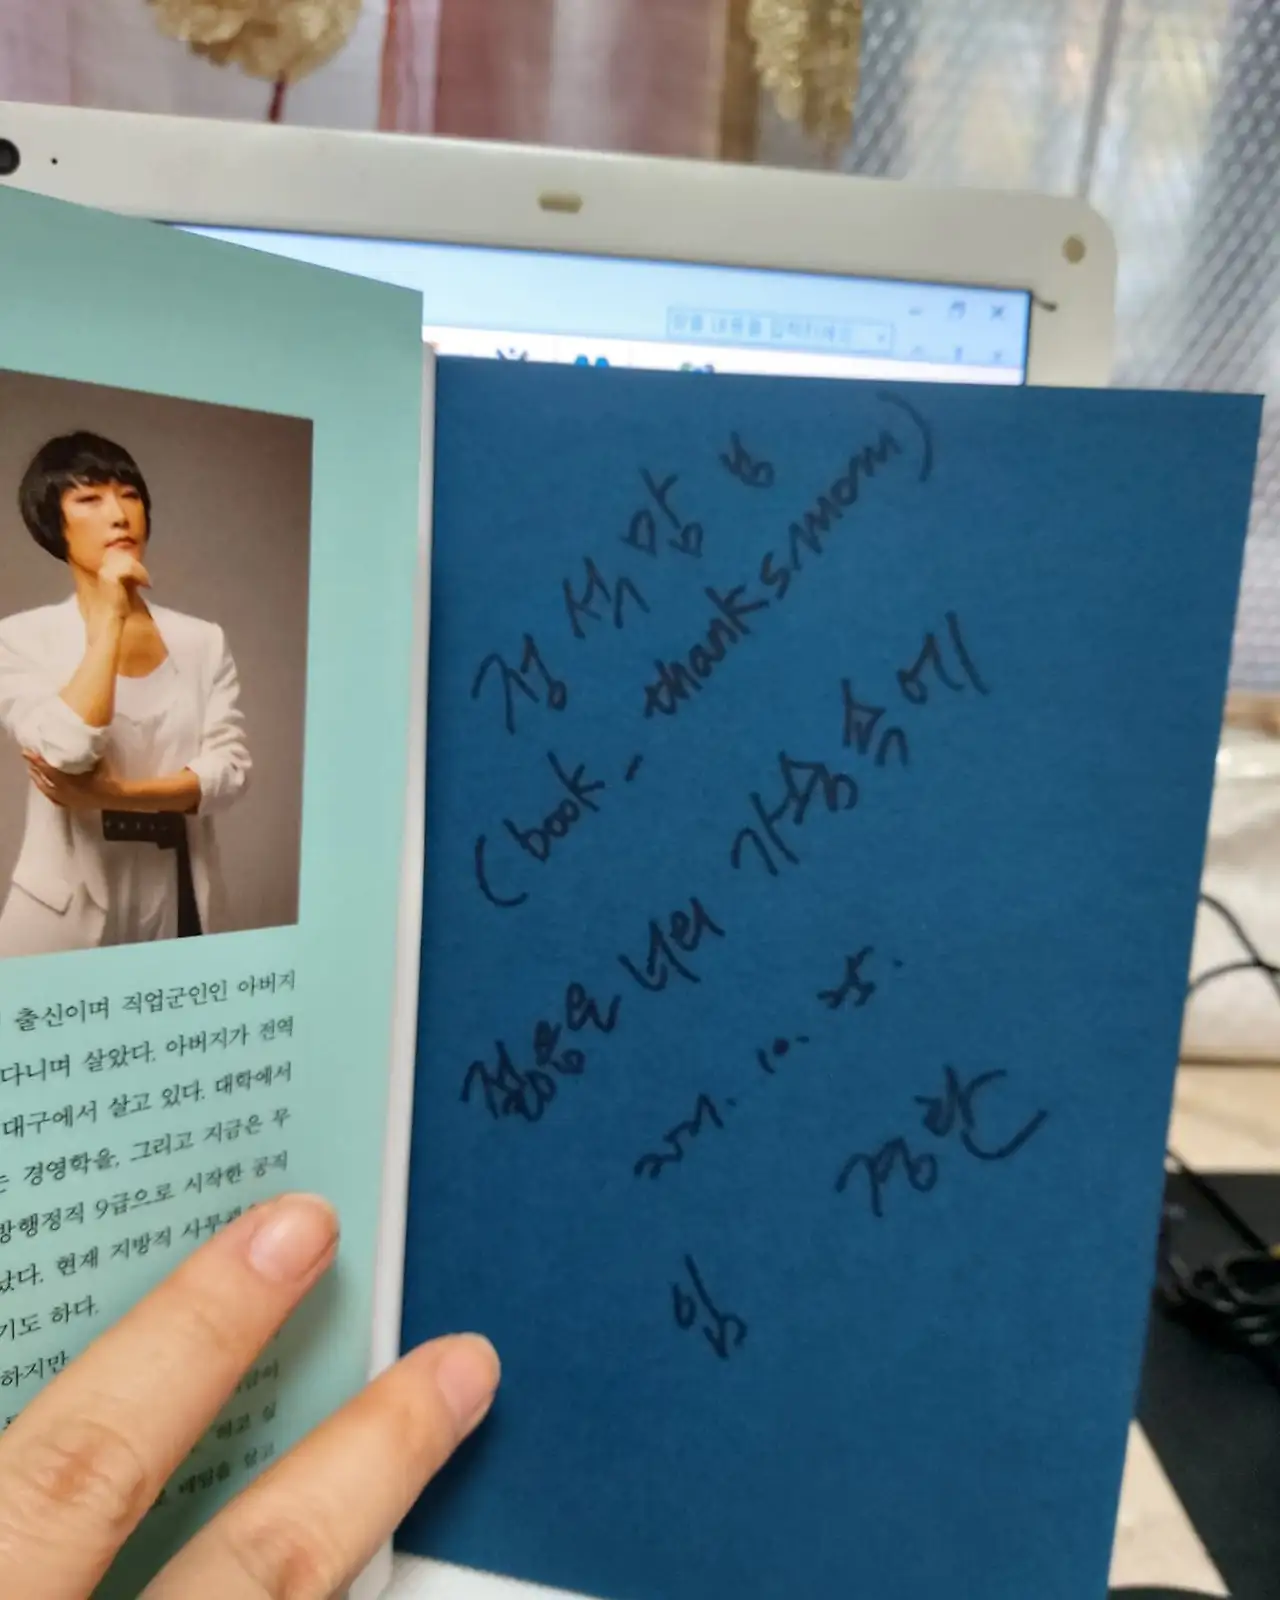 출신이며 직업군인인 아버지
다니며 살았다. 아버지가 전역
대구에서 살고 있다. 대학에서
는 경영학을, 그리고 지금은 무
방행정직 9급으로 시작한 공직
났다. 현재 지방직
기도 하다.
하지만
하고 싶
정석맘 님
(book_thanksmom)
젊음은 너의 가슴속에
2021. 10. 25.
정란
임